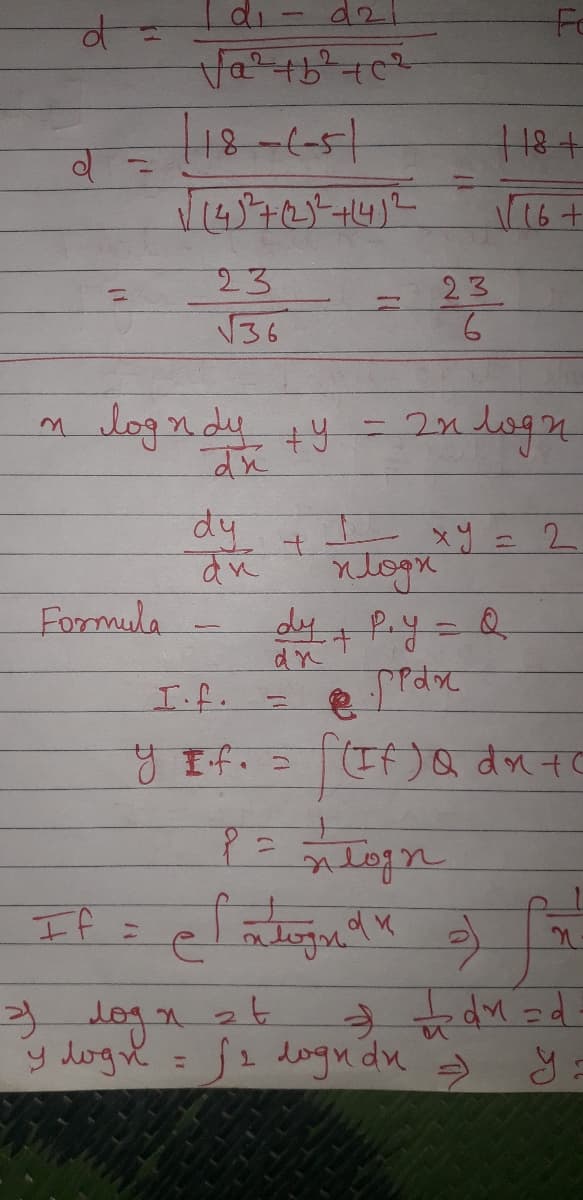 d = |d1 - d2| / √a²+b²+c²
d = |18-(-5| / √(4)²+(2)²+(4)² = |18+ / √16+
= 23/√36 = 23/6
x log x dy/dx + y = 2x log x
dy/dx + 1/x log x × y = 2
Formula - dy/dx + P.y = Q
I.f. = e ∫Pdx
y I.f. = ∫(If) Q dx + C
P = 1/x log x
If = e∫ 1/x log x dx ⇒ ∫ 1/x
⇒ log x = t ⇒ 1/x dx = d
y log x = ∫2 log x dx ⇒ y =